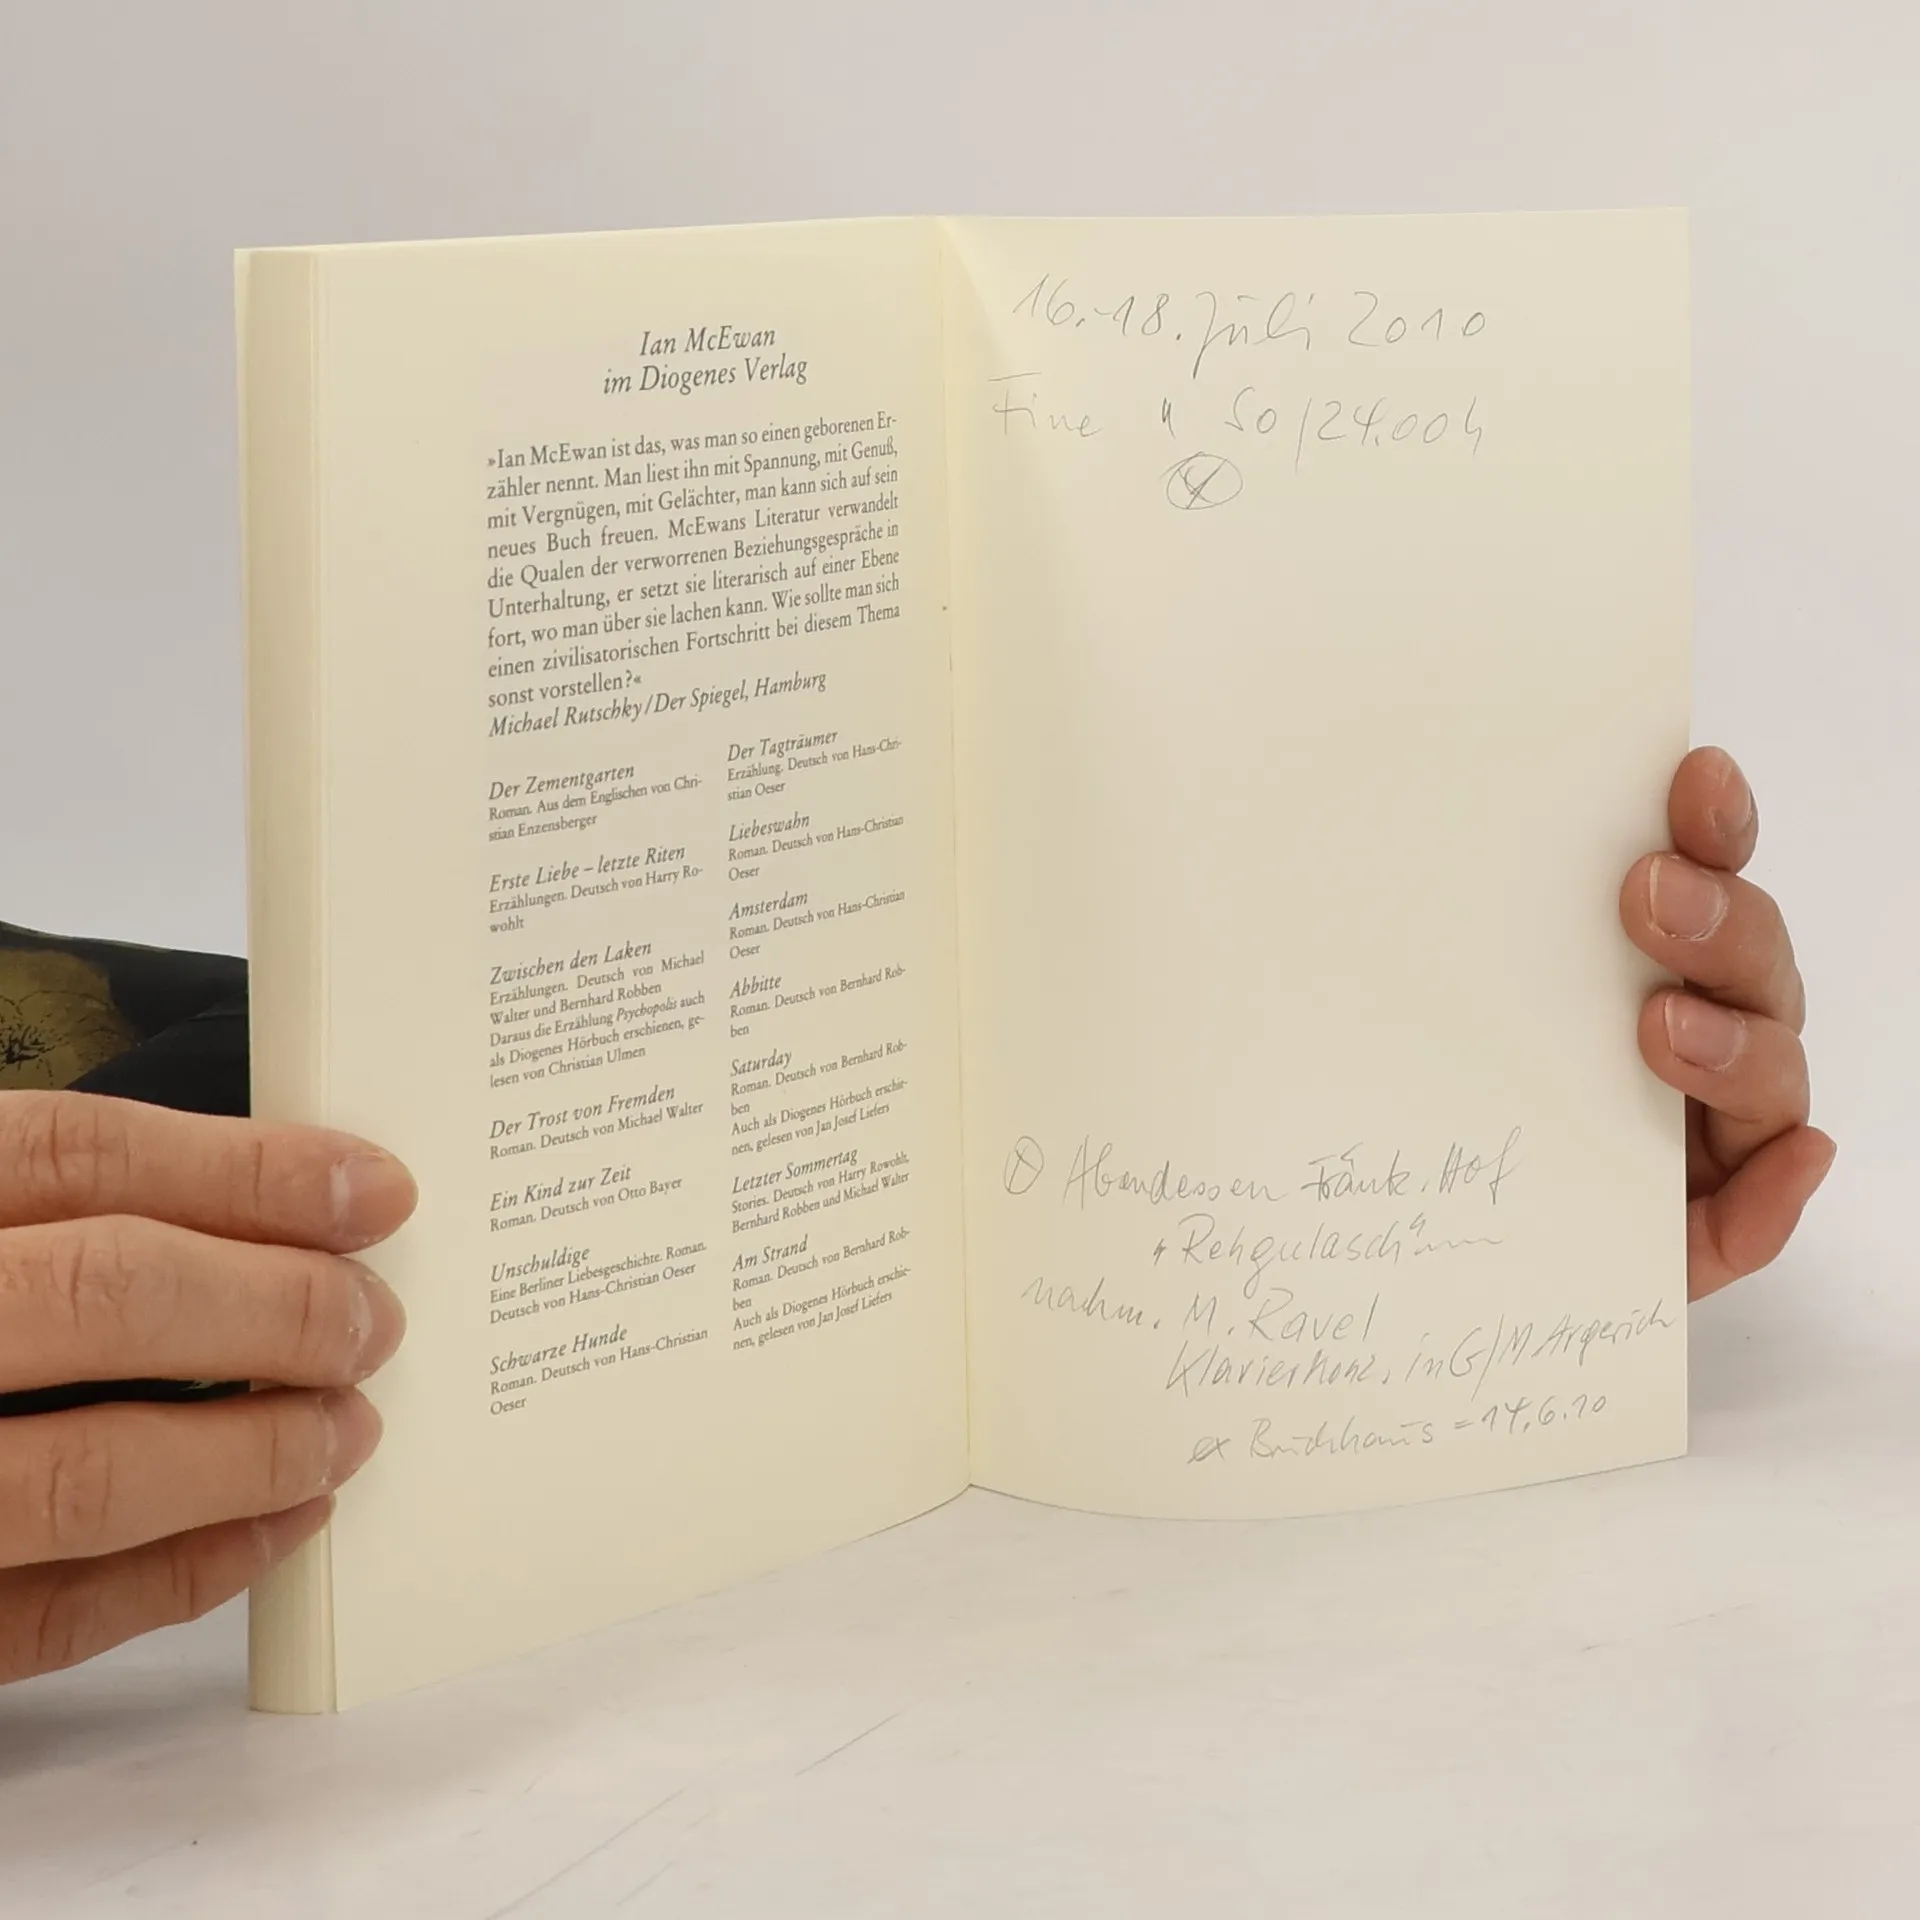 Ian McEwan
im Diogenes Verlag
»Ian McEwan ist das, was man so einen geborenen Er-
zähler nennt. Man liest ihn mit Spannung, mit Genuß,
mit Vergnügen, mit Gelächter, man kann sich auf sein
neues Buch freuen. McEwans Literatur verwandelt
die Qualen der verworrenen Beziehungsgespräche in
Unterhaltung, er setzt sie literarisch auf einer Ebene
fort, wo man über sie lachen kann. Wie sollte man sich
einen zivilisatorischen Fortschritt bei diesem Thema
sonst vorstellen?«
Michael Rutschky/Der Spiegel, Hamburg
Der Zementgarten
Roman. Aus dem Englischen von Chri-
stian Enzensberger
Erste Liebe – letzte Riten
Erzählungen. Deutsch von Harry Ro-
wohlt
Zwischen den Laken
Erzählungen. Deutsch von Michael
Walter und Bernhard Robben
Daraus die Erzählung Psychopolis auch
als Diogenes Hörbuch erschienen, ge-
lesen von Christian Ulmen
Der Trost von Fremden
Roman. Deutsch von Michael Walter
Ein Kind zur Zeit
Roman. Deutsch von Otto Bayer
Unschuldige
Eine Berliner Liebesgeschichte. Roman.
Deutsch von Hans-Christian Oeser
Schwarze Hunde
Roman. Deutsch von Hans-Christian
Oeser
Der Tagträumer
Erzählung. Deutsch von Hans-Chri-
stian Oeser
Liebeswahn
Roman. Deutsch von Hans-Christian
Oeser
Amsterdam
Roman. Deutsch von Hans-Christian
Oeser
Abbitte
Roman. Deutsch von Bernhard Rob-
ben
Saturday
Roman. Deutsch von Bernhard Rob-
ben
Auch als Diogenes Hörbuch erschie-
nen, gelesen von Jan Josef Liefers
Letzter Sommertag
Stories. Deutsch von Harry Rowohlt,
Bernhard Robben und Michael Walter
Am Strand
Roman. Deutsch von Bernhard Rob-
ben
Auch als Diogenes Hörbuch erschie-
nen, gelesen von Jan Josef Liefers
16.-18. Juli 2010
Fine " So/24.00 h
Abendessen Fränk. Hof
"Rehgulasch"
nachm. M. Ravel
Klavierkonz. in G/M Argerich
ex = 14.6.10